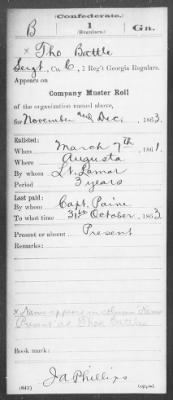 (Confederate.)
B 1 Ga.
(Regulars.)
x Tho Battle
Sergt, Co. C, 1 Reg't Georgia Regulars.
Appears on
Company Muster Roll
of the organization named above,
for November and Dec, 1863.
Enlisted:
When March 7th, 1861.
Where Augusta
By whom Lt. Lamar
Period 3 years
Last paid:
By whom Capt. Paine
To what time 31st October, 1863.
Present or absent Present
Remarks:
x Name appears in
as Thos
Book mark:
J A Phillips
(642) Copyist.